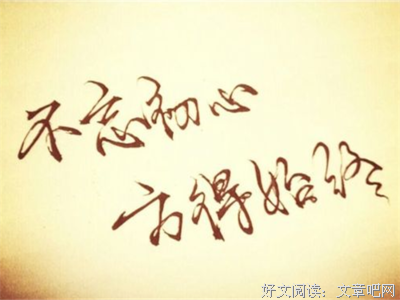 不忘初心
方得始终
好文阅读：文章吧网